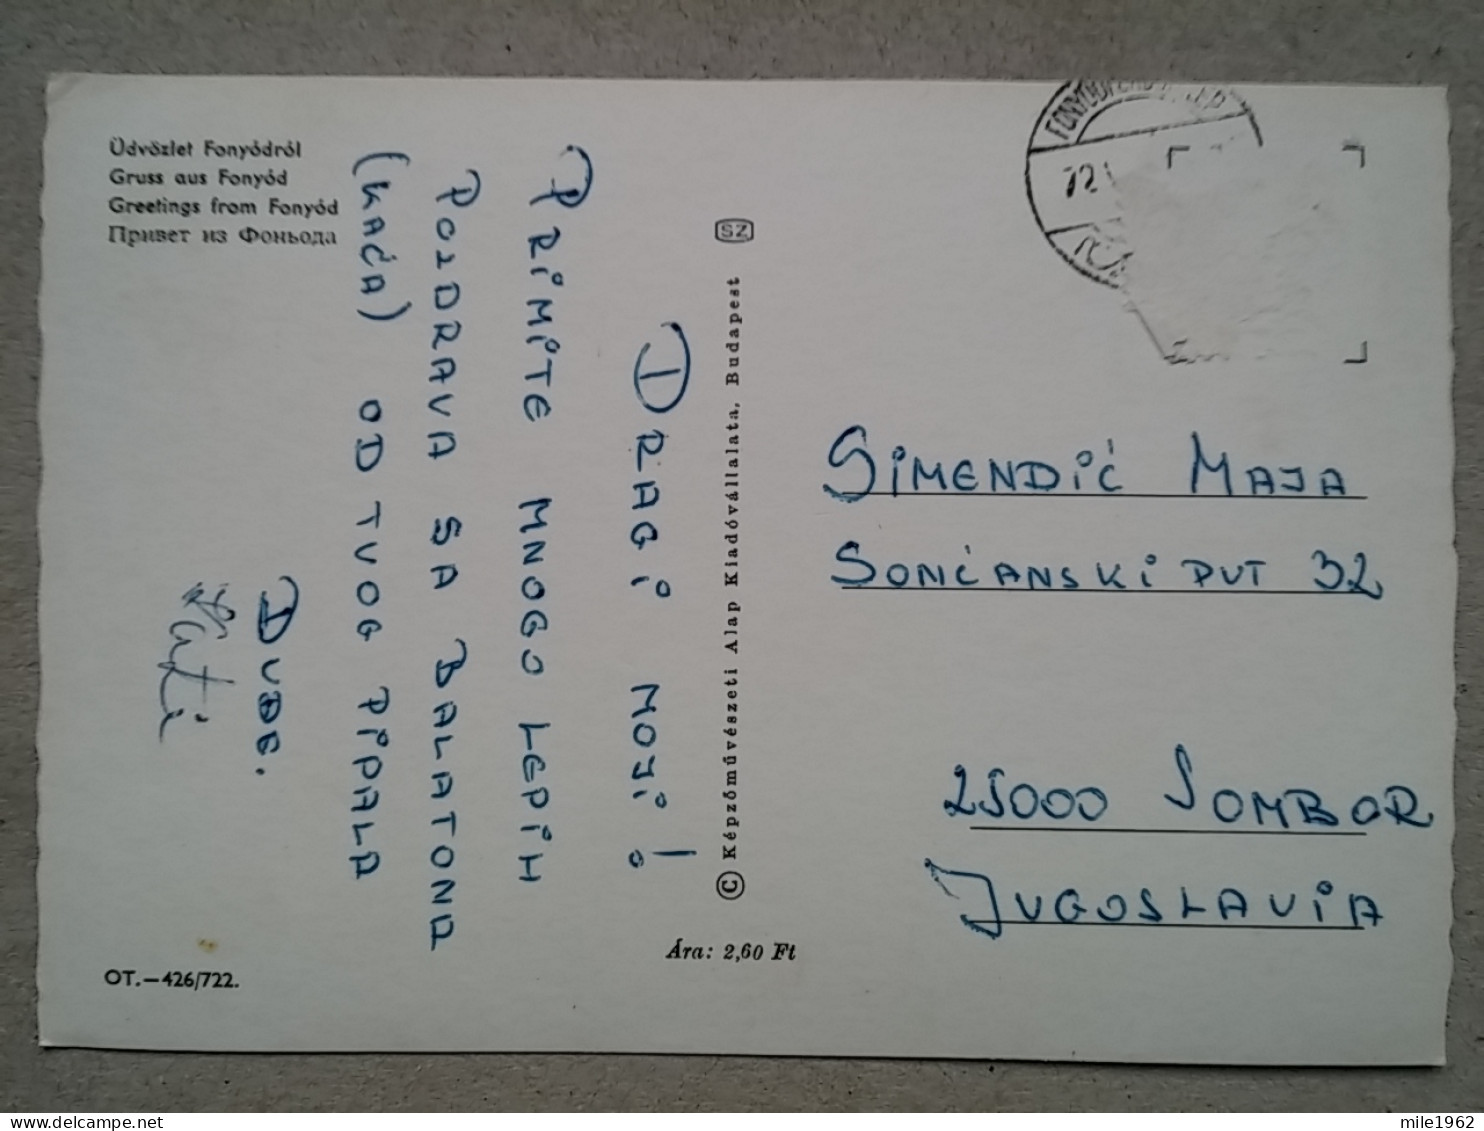 Üdvözlet Fonyódról
Gruss aus Fonyód
Greetings from Fonyód
Привет из Фоньода
DRAGI MOJI!
PRIMITE MNOGO LEPIH
POZDRAVA SA BALATONA
(KAĆA) OD TVOG PIPALA
DUĐE.
Kati
SZ
© Képzőművészeti Alap Kiadóvállalata, Budapest
72
SIMENDIĆ MAJA
SONĆANSKI PUT 32
25000 SOMBOR
JUGOSLAVIA
Ára: 2,60 Ft
OT.—426/722.
mile1962